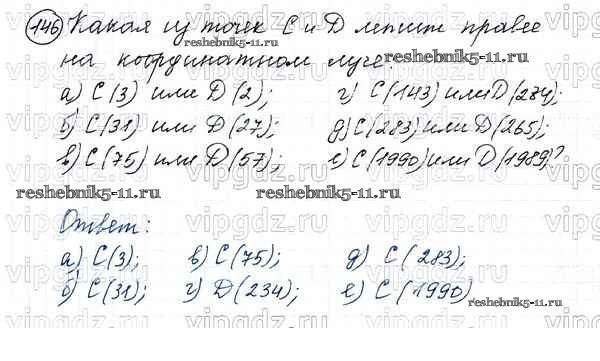 146 Какая из точек C и D лежит правее
reshebnik5-11.ru
на координатном луче:
reshebnik5-11.ru
а) C(3) или D(2); г) C(143) или D(234);
б) C(31) или D(27); д) C(283) или D(265);
в) C(75) или D(57); е) C(1990) или D(1989)?
reshebnik5-11.ru reshebnik5-11.ru
Ответ:
а) C(3); в) C(75); д) C(283);
reshebnik5-11.ru
б) C(31); г) D(234); е) C(1990)
reshebnik5-11.ru
vipgdz.ru vipgdz.ru vipgdz.ru vipgdz.ru